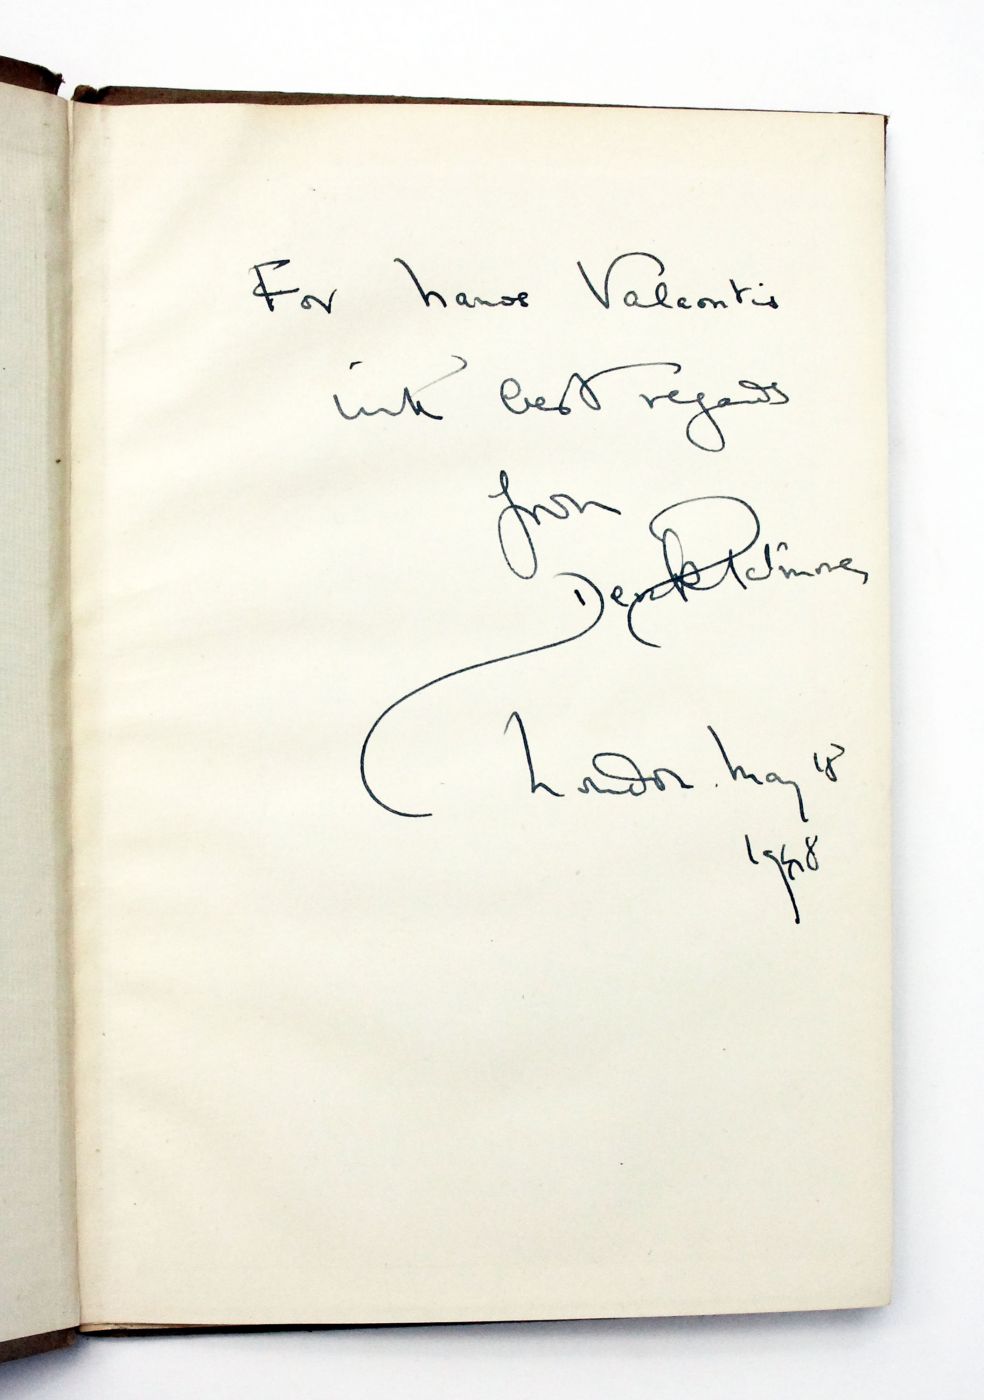 For Nanos Valaoritis
with best regards
from
Derek Patmore
London. May 18
1948